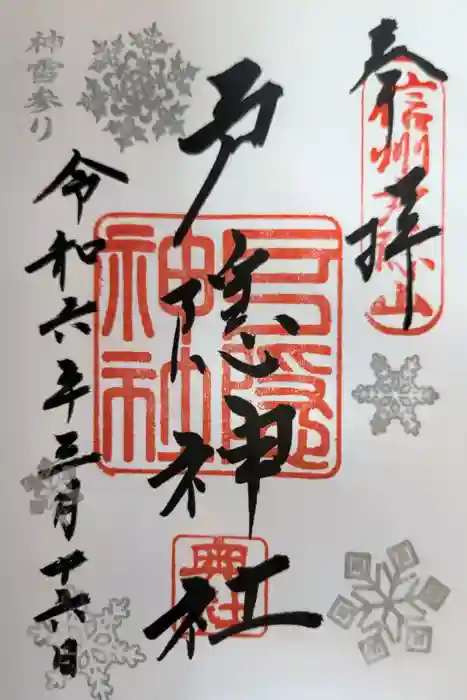 奉拝
信州戸隠山
戸隠神社
戸隠神社
令和六年三月十六日
神雪参り